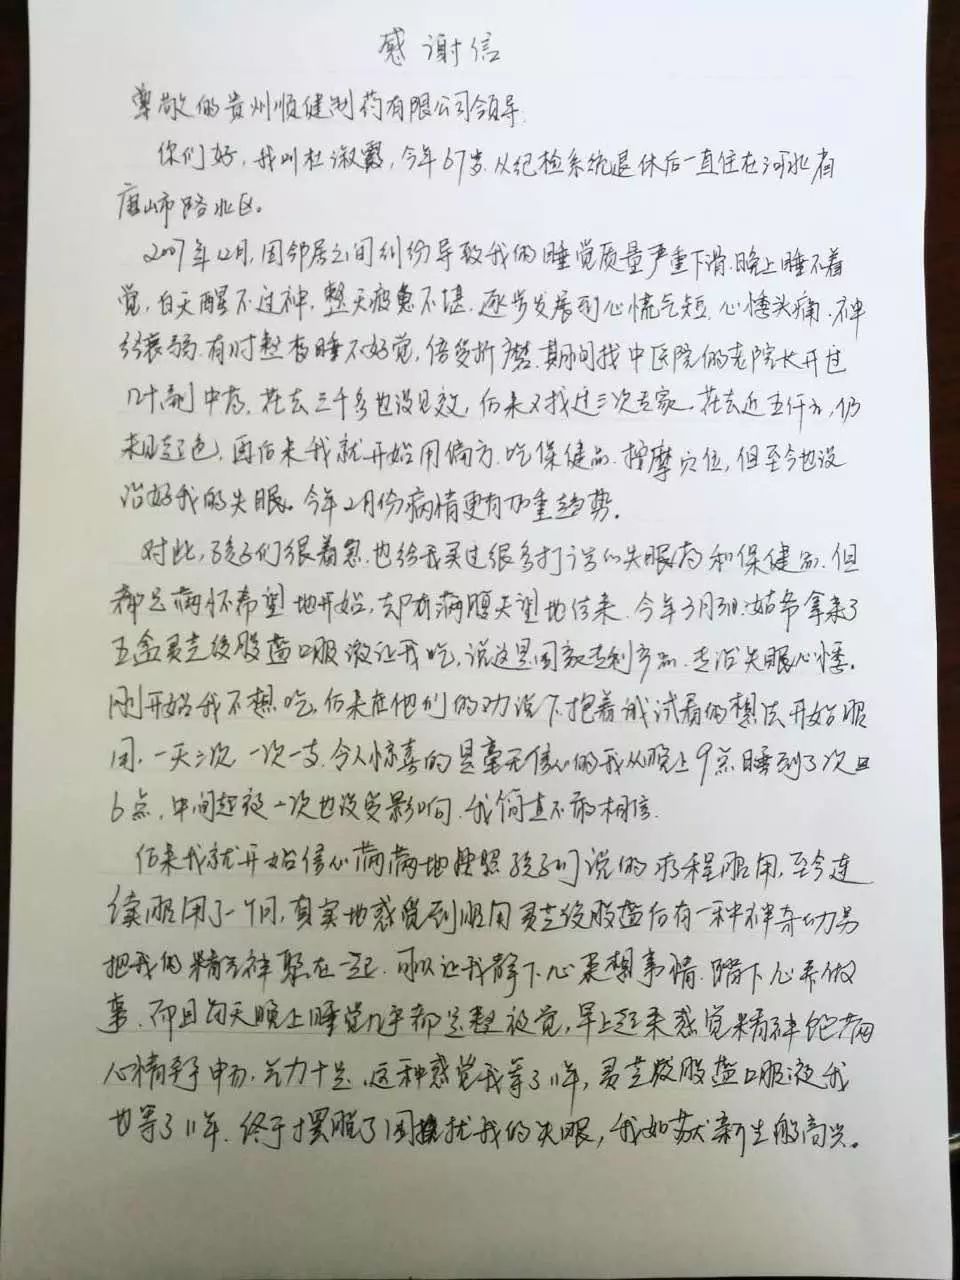 感谢信
尊敬的贵州顺健制药有限公司领导
你们好，我叫杜淑霞，今年67岁.从纪检系统退休后一直住在河北省
唐山市路北区。
2007年12月，因邻居之间纠纷导致我的睡觉质量严重下滑.晚上睡不着
觉，白天醒不过神，整天疲惫不堪.逐步发展到心慌气短.心悸头痛.神
经衰弱.有时整宿睡不好觉，倍受折磨.期间找中医院的老院长开过
几十副中药.花去三千多也没见效，后来又找过三次专家.花去近五仟元，仍
未见起色，再后来我就开始用偏方.吃保健品.按摩穴位，但至今也没
治好我的失眠。今年2月份病情更有加重趋势。
对此，孩子们很着急.也给我买过很多打诊的失眠药和保健品.但
都是满怀希望地开始，却有满腹失望地结束.今年3月3日.姑爷拿来了
五盒灵芝缓股蓝口服液让我吃，说这是国家专利产品.专治失眠心悸。
刚开始我不想吃，后来在他们的劝说下抱着试试看的想法开始服
用，一天三次一次一支.令人惊喜的是毫无信心的我从晚上9点睡到了次日
6点，中间起夜一次也没受影响.我简直不敢相信.
后来我就开始信心满满地按照孩子们说的疗程服用，至今连
续服用了一个月，真实地感觉到服用灵芝绞股蓝后有一种神奇功男
把我的精气神聚在一起.可以让我静下心来想事情.踏下心来做
事.而且每天晚上睡觉几乎都是整夜觉，早上起来感觉精神饱满
心情舒畅，气力十足.这种感觉我等了11年，灵芝绞股蓝口服液我
也等了11年.终于摆脱了困扰我的失眠，我如获新生般高兴。